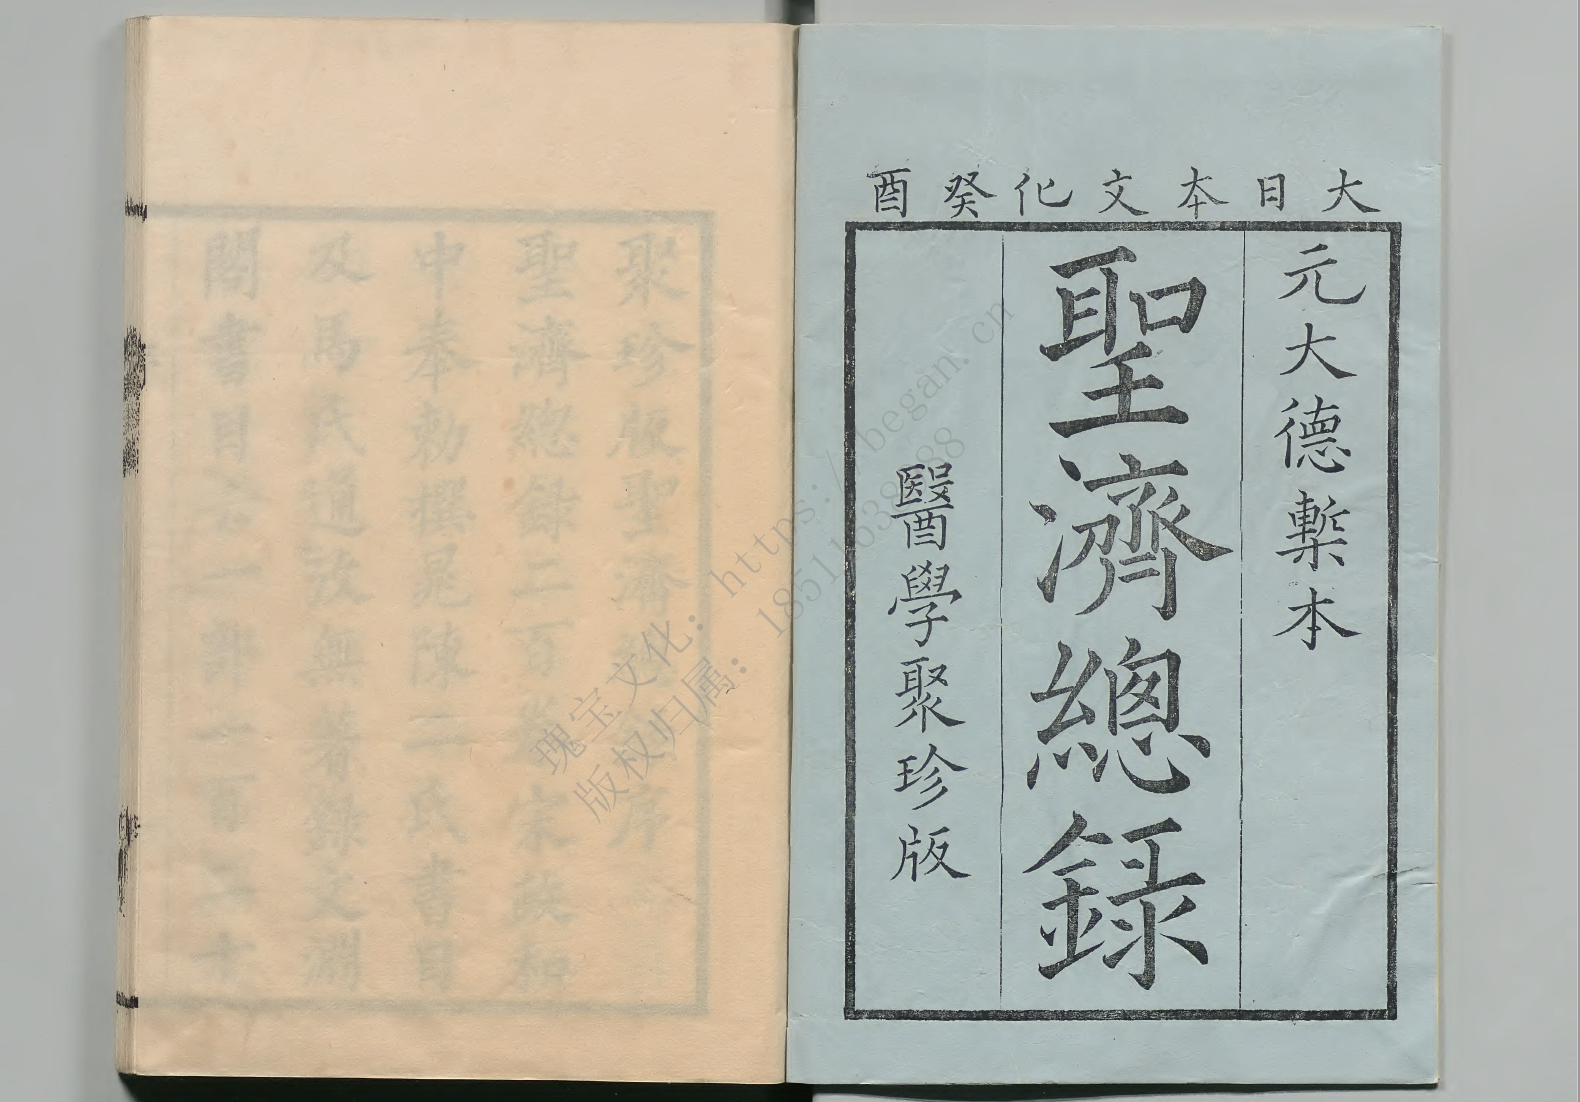 大日本文化癸酉
元大德槧本
聖濟總録
醫學聚珍版
聚珍版聖濟總
序
聖濟總錄二百卷宋政和
中奉勅撰晁陳二氏書目
及馬氏通攷無著錄文淵
閣書目
一部一百
十
瑰宝文化：https://began.cn
版权归属：